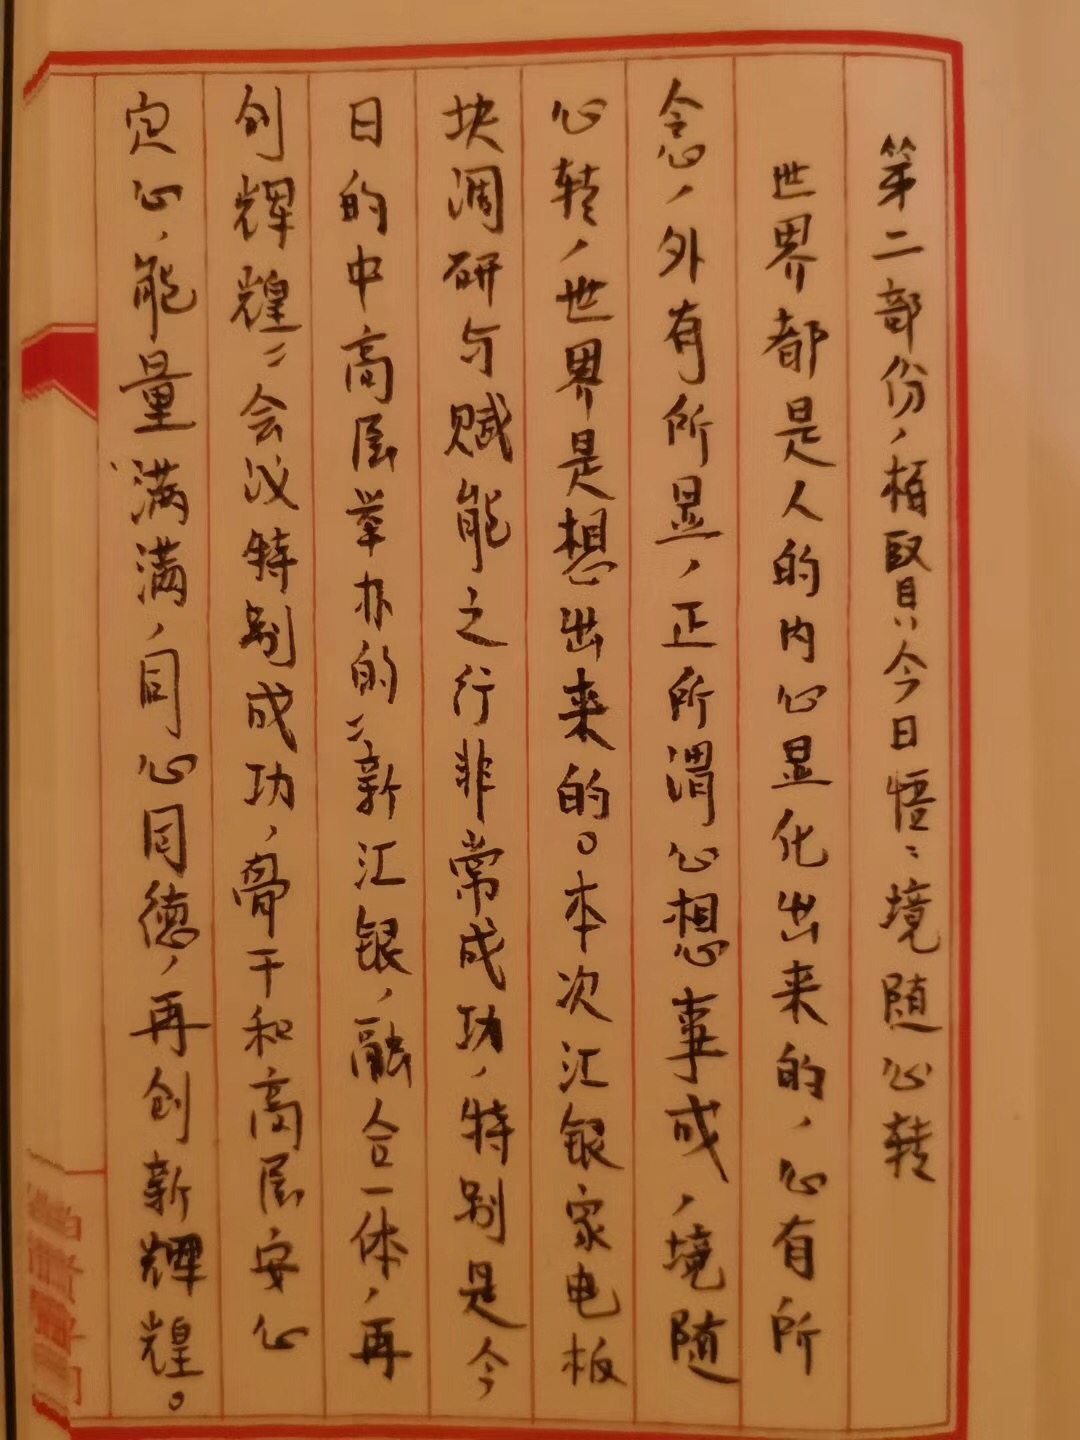 第二部份，栢賢今日悟：境随心转
世界都是人的内心显化出来的，心有所
念，外有所显，正所谓心想事成，境随
心转，世界是想出来的。本次汇银家电板
块调研与赋能之行非常成功，特别是今
日的中高层举办的“新汇银，融合一体，再
创辉煌”会议特别成功，骨干和高层安心
定心，能量满满，同心同德，再创新辉煌。